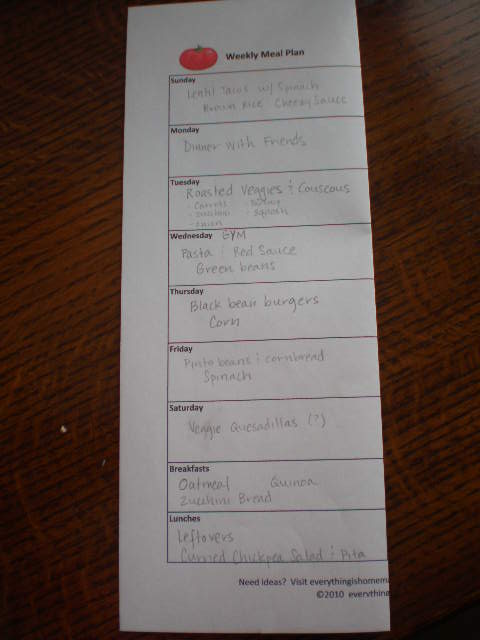 Weekly Meal Plan
Sunday
Lentil Tacos w/ Spinach
Brown Rice Cheezy Sauce
Monday
Dinner with Friends
Tuesday
Roasted Veggies & Couscous
- Carrots
- zucchini - squash
- onion
Wednesday GYM
Pasta & Red Sauce
Green beans
Thursday
Black bean burgers
Corn
Friday
Pinto beans & cornbread
Spinach
Saturday
Veggie Quesadillas (?)
Breakfasts
Oatmeal Quinoa
Zucchini Bread
Lunches
Leftovers
Curried Chickpea Salad & Pita
Need ideas? Visit everythingishomem
©2010 everything